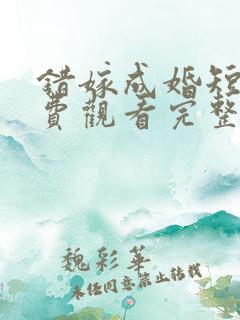 錯嫁成婚短
費觀看完整
魏彩華
未经同意禁止转载